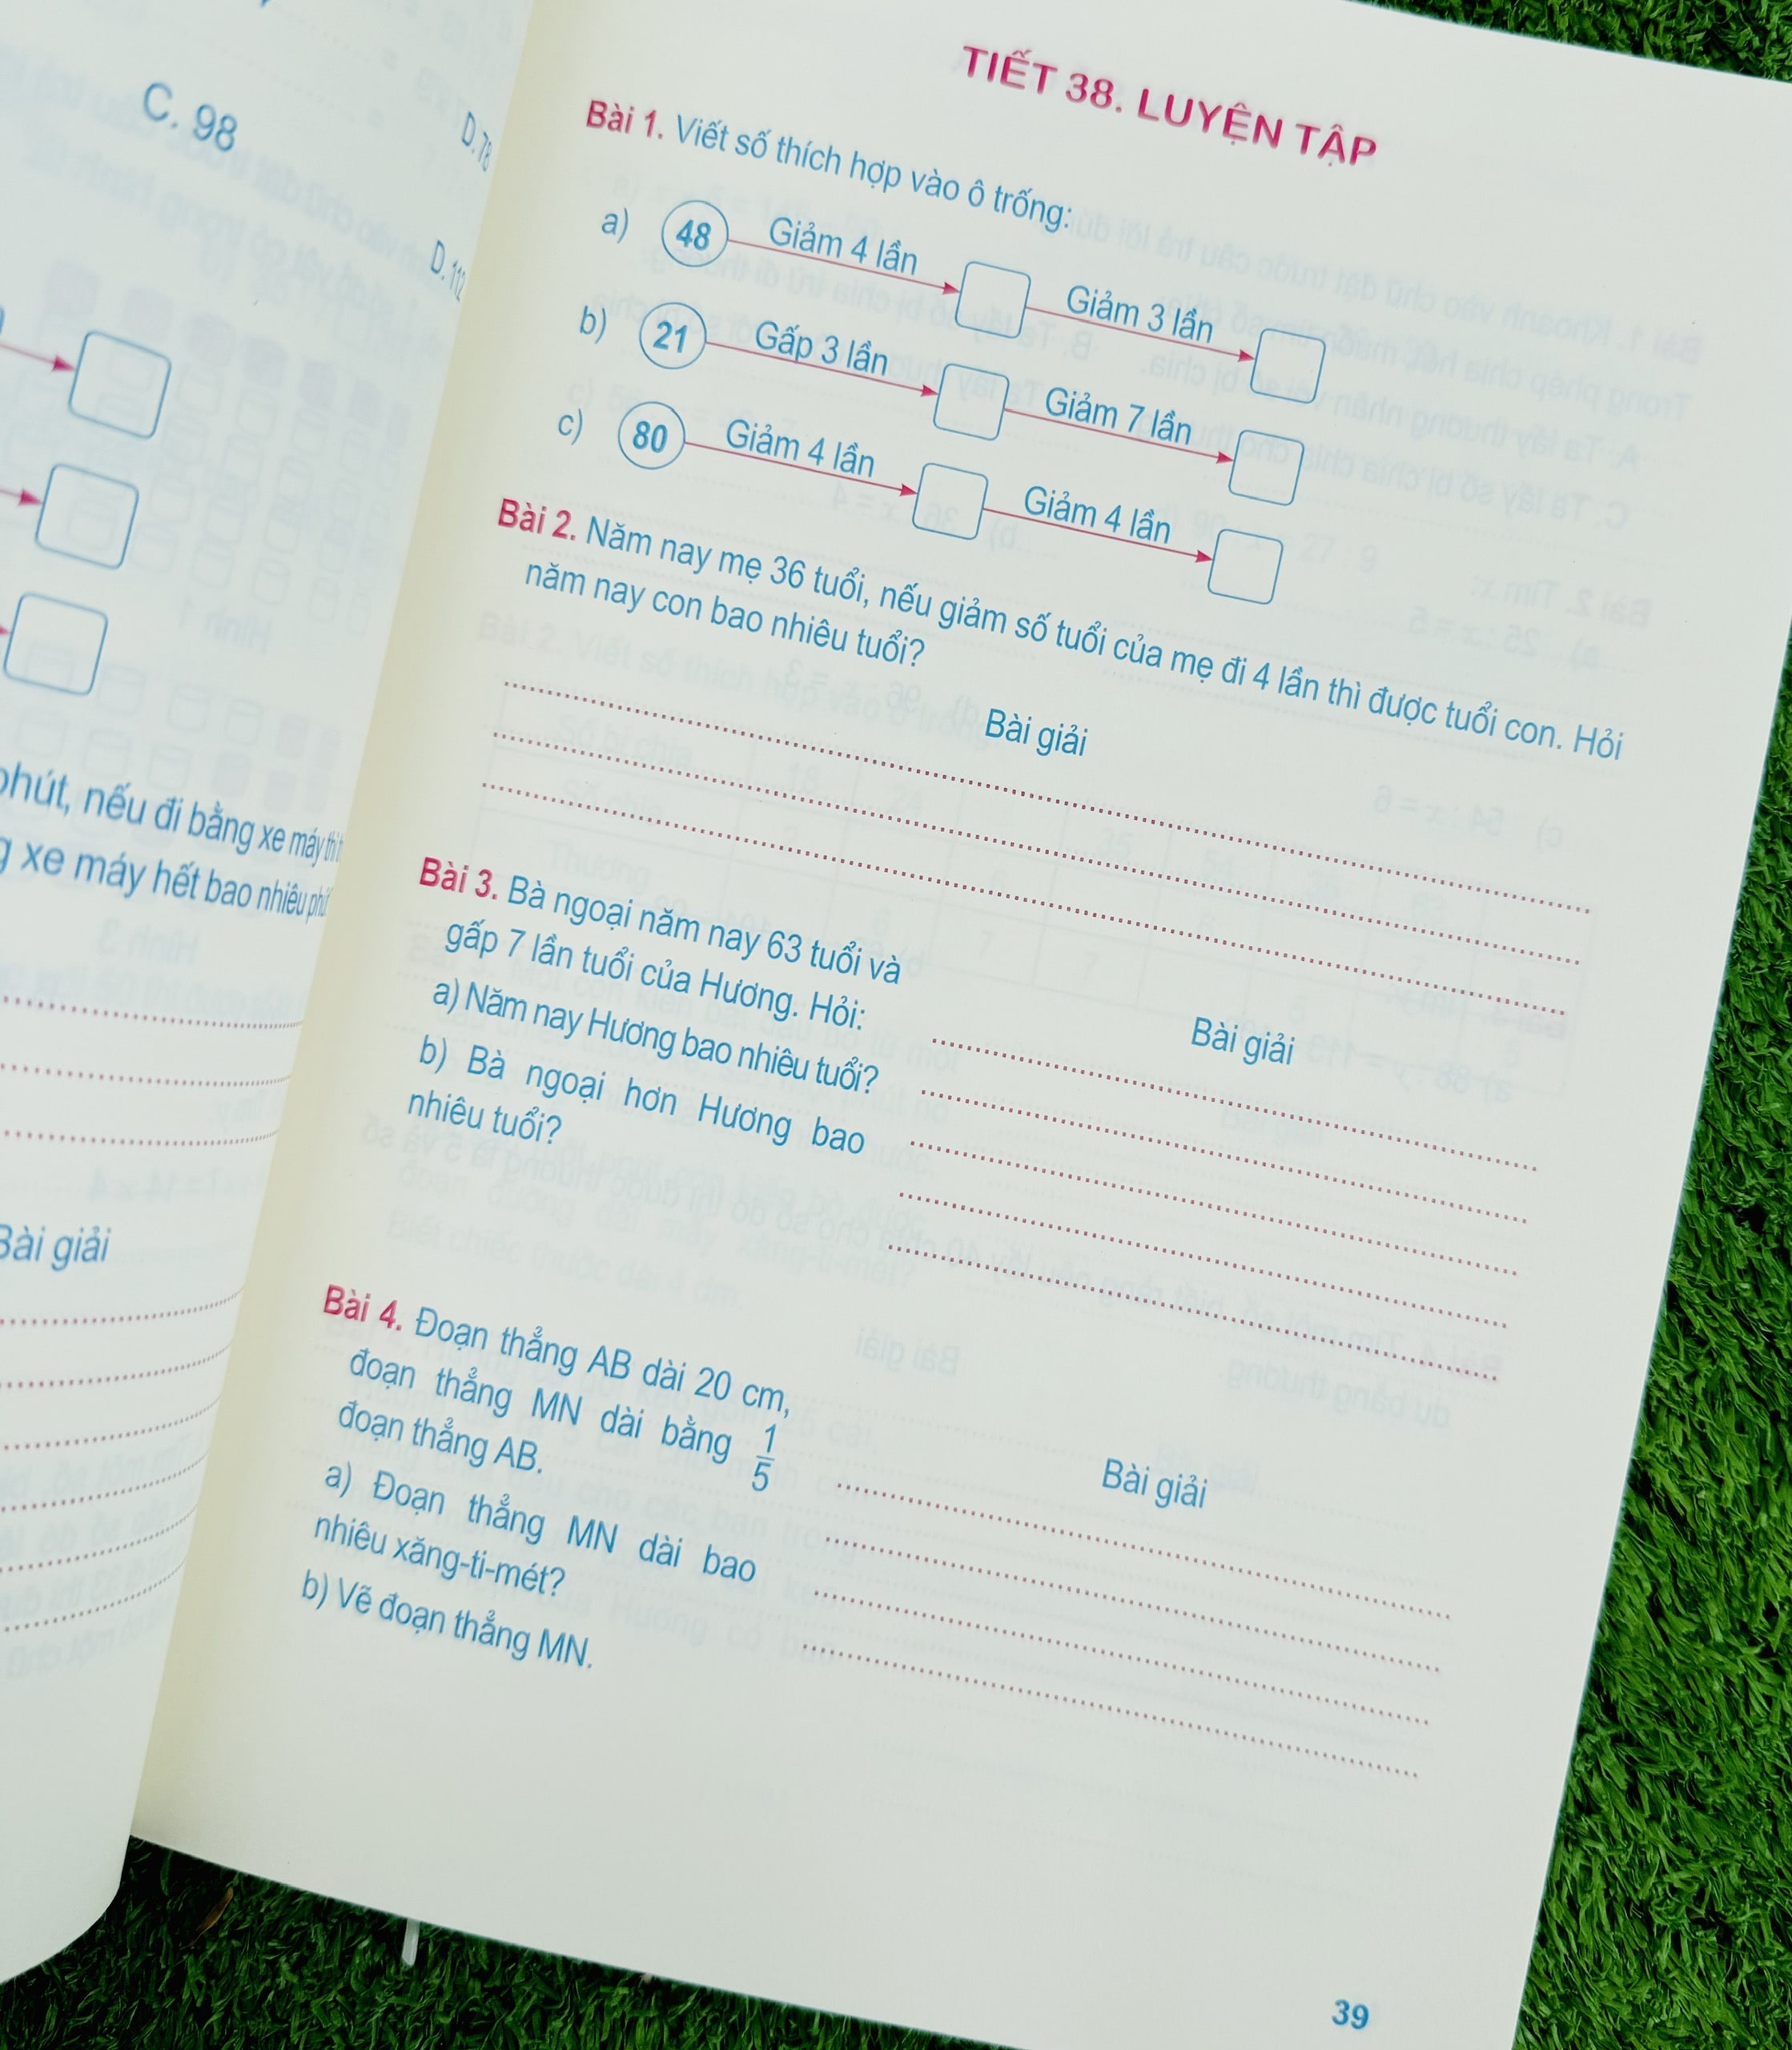 C. 98
D. 78
D. 112
phút, nếu đi bằng xe máy thì
xe máy hết bao nhiêu phút
Bài giải
TIẾT 38. LUYỆN TẬP
Bài 1. Viết số thích hợp vào ô trống:
a) 48 Giảm 4 lần Giảm 3 lần
b) 21 Gấp 3 lần Giảm 7 lần
c) 80 Giảm 4 lần Giảm 4 lần
Bài 2. Năm nay mẹ 36 tuổi, nếu giảm số tuổi của mẹ đi 4 lần thì được tuổi con. Hỏi
năm nay con bao nhiêu tuổi?
Bài giải
Bài 3. Bà ngoại năm nay 63 tuổi và
gấp 7 lần tuổi của Hương. Hỏi:
a) Năm nay Hương bao nhiêu tuổi?
b) Bà ngoại hơn Hương bao
nhiêu tuổi?
Bài giải
Bài 4. Đoạn thẳng AB dài 20 cm,
đoạn thẳng MN dài bằng 1/5
đoạn thẳng AB.
a) Đoạn thẳng MN dài bao
nhiêu xăng-ti-mét?
b) Vẽ đoạn thẳng MN.
Bài giải
39